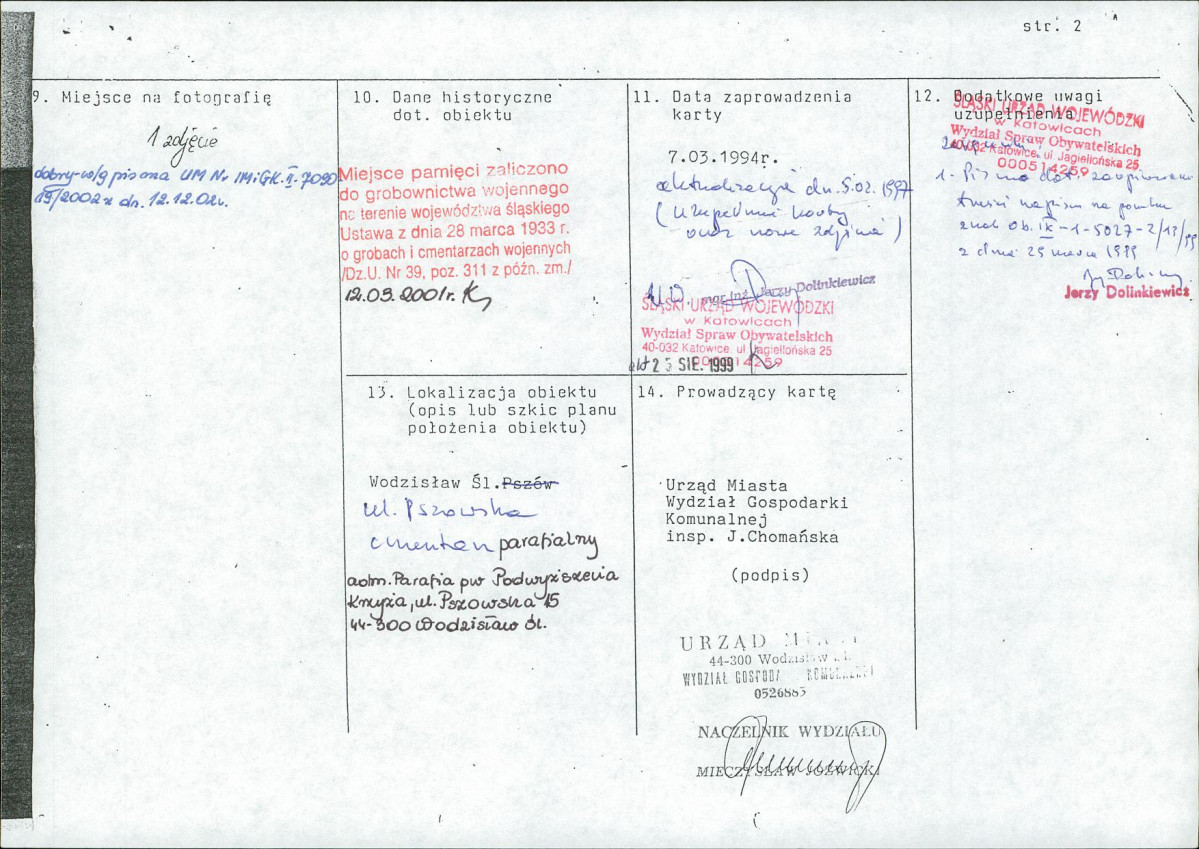 str. 2
9. Miejsce na fotografię
1 zdjęcie
dobry-w/g pisma UM Nr IMiGK.II-7090
15/2002 z dn. 12.12.02r.
10. Dane historyczne
dot. obiektu
Miejsce pamięci zaliczono
do grobownictwa wojennego
na terenie województwa śląskiego
Ustawa z dnia 28 marca 1933 r.
o grobach i cmentarzach wojennych
/Dz.U. Nr 39, poz. 311 z późn. zm./
12.09.2001r.
11. Data zaprowadzenia
karty
7.03.1994r.
aktualizacja dn. 5.02.1997
(uzupełnienie karty
oraz nowe zdjęcia)
mgr inż. Jerzy Dolinkiewicz
ŚLĄSKI URZĄD WOJEWÓDZKI
w Katowicach
Wydział Spraw Obywatelskich
40-032 Katowice, ul. Jagiellońska 25
000514259
akt 25 SIE. 1999
12. Dodatkowe uwagi
uzupełnienia
ŚLĄSKI URZĄD WOJEWÓDZKI
w Katowicach
Wydział Spraw Obywatelskich
40-032 Katowice, ul. Jagiellońska 25
000514259
1. Pismo dot.
treści napisu na pomniku
znak Ob. IX-1-5027-2/13/99
z dnia 25 marca 1999
Jerzy Dolinkiewicz
13. Lokalizacja obiektu
(opis lub szkic planu
położenia obiektu)
Wodzisław Śl. Pszów
ul. Pszowska
cmentarz parafialny
adm. Parafia pw Podwyższenia
Krzyża, ul. Pszowska 15
44-300 Wodzisław Śl.
14. Prowadzący kartę
Urząd Miasta
Wydział Gospodarki
Komunalnej
insp. J.Chomańska
(podpis)
URZĄD
44-300 Wodzisław
WYDZIAŁ GOSPODA KOMUNALNEJ
0526883
NACZELNIK WYDZIAŁU
MIECZYSŁAW JÓŹWICKI